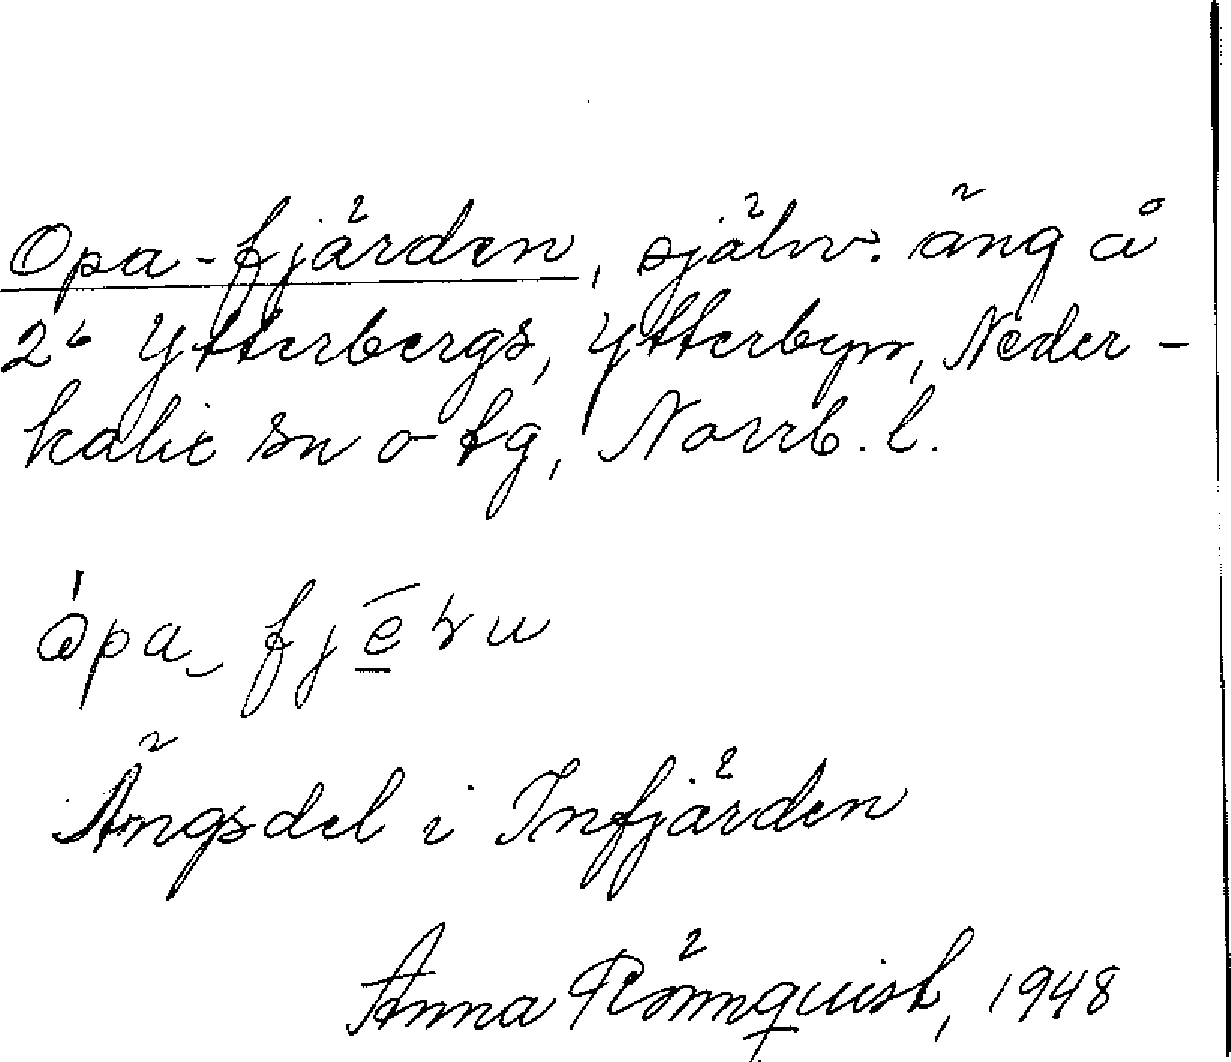 Opa-fjärden, självv. äng å
2⁶ Ytterbergs, Ytterbyn, Neder-
kalix sn o tg, Norrb. l.
Ängsdel i Infjärden
Anna Rönnquist, 1948